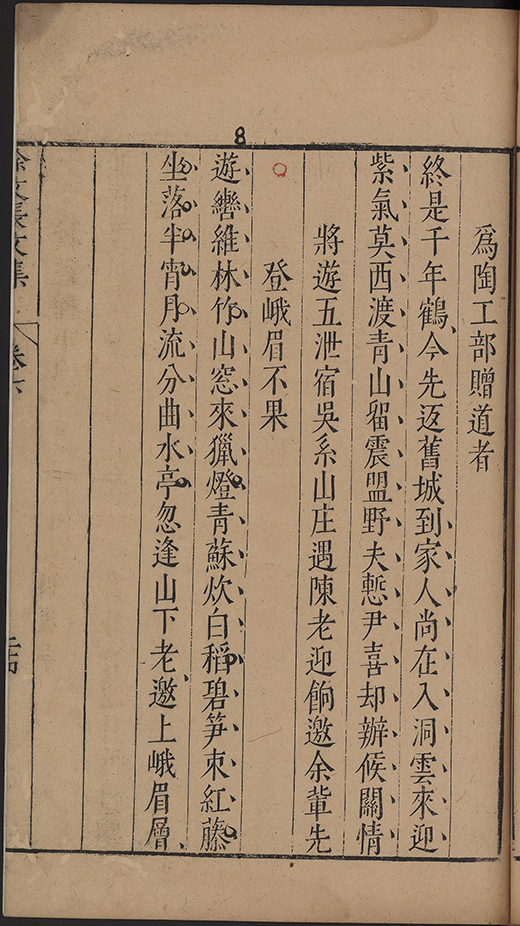 8
爲陶工部贈道者
終是千年鶴今先返舊城到家人尚在入洞雲來迎
紫氣莫西渡青山畱震盟野夫慙尹喜却辦候關情
將遊五泄宿吳系山庄遇陳老迎餉邀余輩先
登峨眉不果
遊轡維林竹山窓來獵燈青蘇炊白稻碧笋束紅藤
坐落半宵月流分曲水亭忽逢山下老邀上峨眉層
徐文長文集
卷六